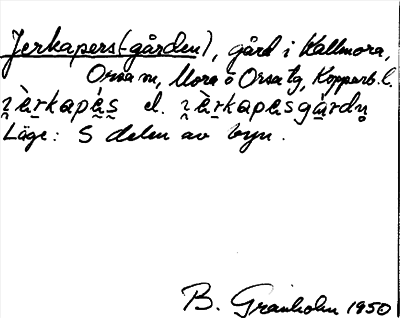 Jerkapers(-gården), gård i Kallmora,
Orsa sn, Mora o Orsa tg, Kopparb. l.
el.
Läge: S delen av byn.
B. Granholm 1950